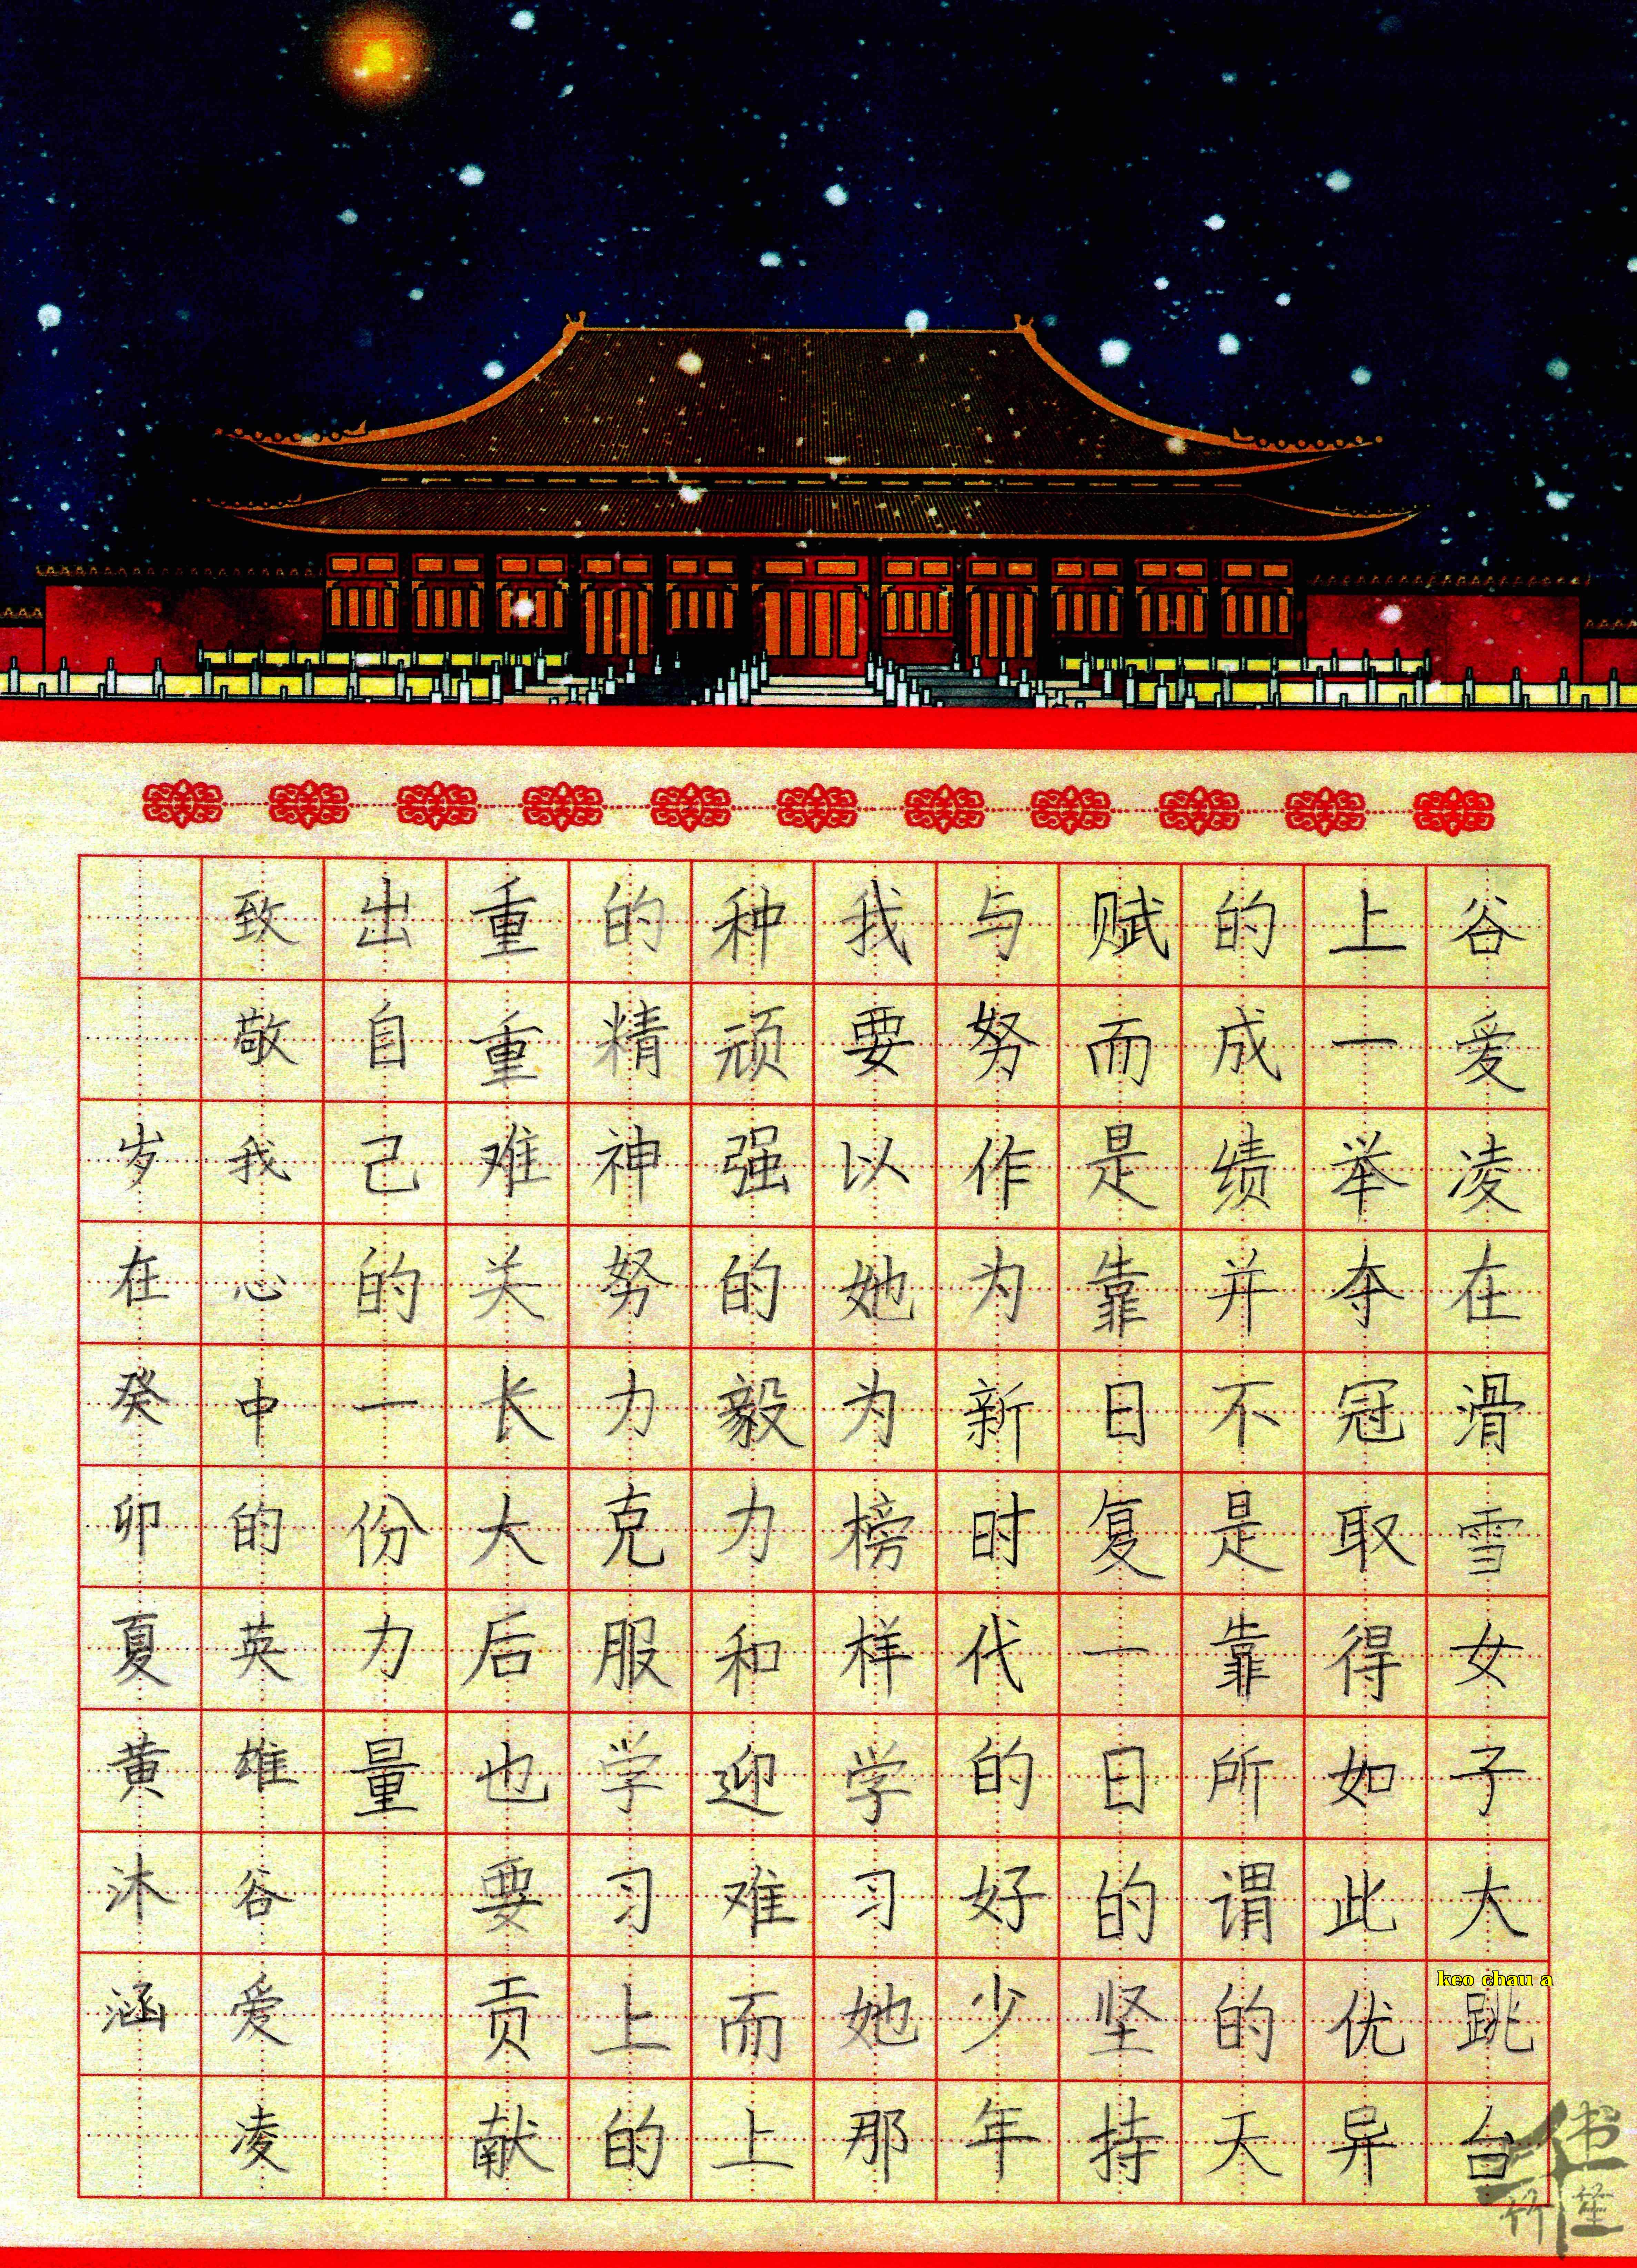 谷爱凌在滑雪女子大跳台
上一举夺冠取得如此优异
的成绩并不是靠所谓的天
赋而是靠日复一日的坚持
与努作为新时代的好少年
我要以她为榜样学习她那
种顽强的毅力和迎难而上
的精神努力克服学习上的
重重难关长大后也要贡献
出自己的一份力量
致敬我心中的英雄谷爱凌
岁在癸卯夏黄沐涵
keo chau a